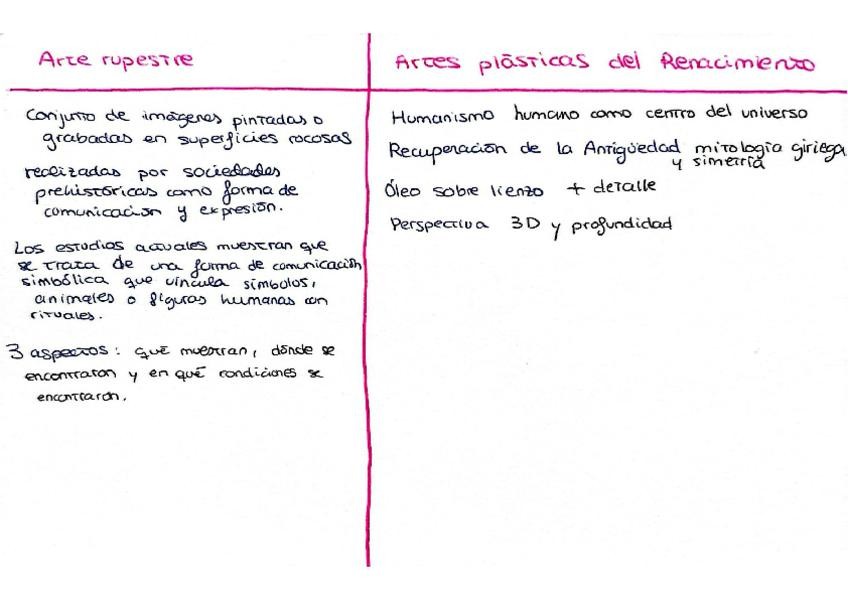 Arte rupestre
Conjunto de imágenes pintadas o
grabadas en superficies rocosas
realizadas por sociedades
prehistóricas como forma de
comunicación y expresión.
Los estudios actuales muestran que
se trata de una forma de comunicación
simbólica que vincula símbolos,
animales o figuras humanas con
rituales.
3 aspectos: qué muestran, dónde se
encontraron y en qué condiciones se
encontraron.
Artes plásticas del Renacimiento
Humanismo humano como centro del universo
Recuperación de la Antigüedad mitología giriega
y simetría
Óleo sobre lienzo + detalle
Perspectiva 3D y profundidad